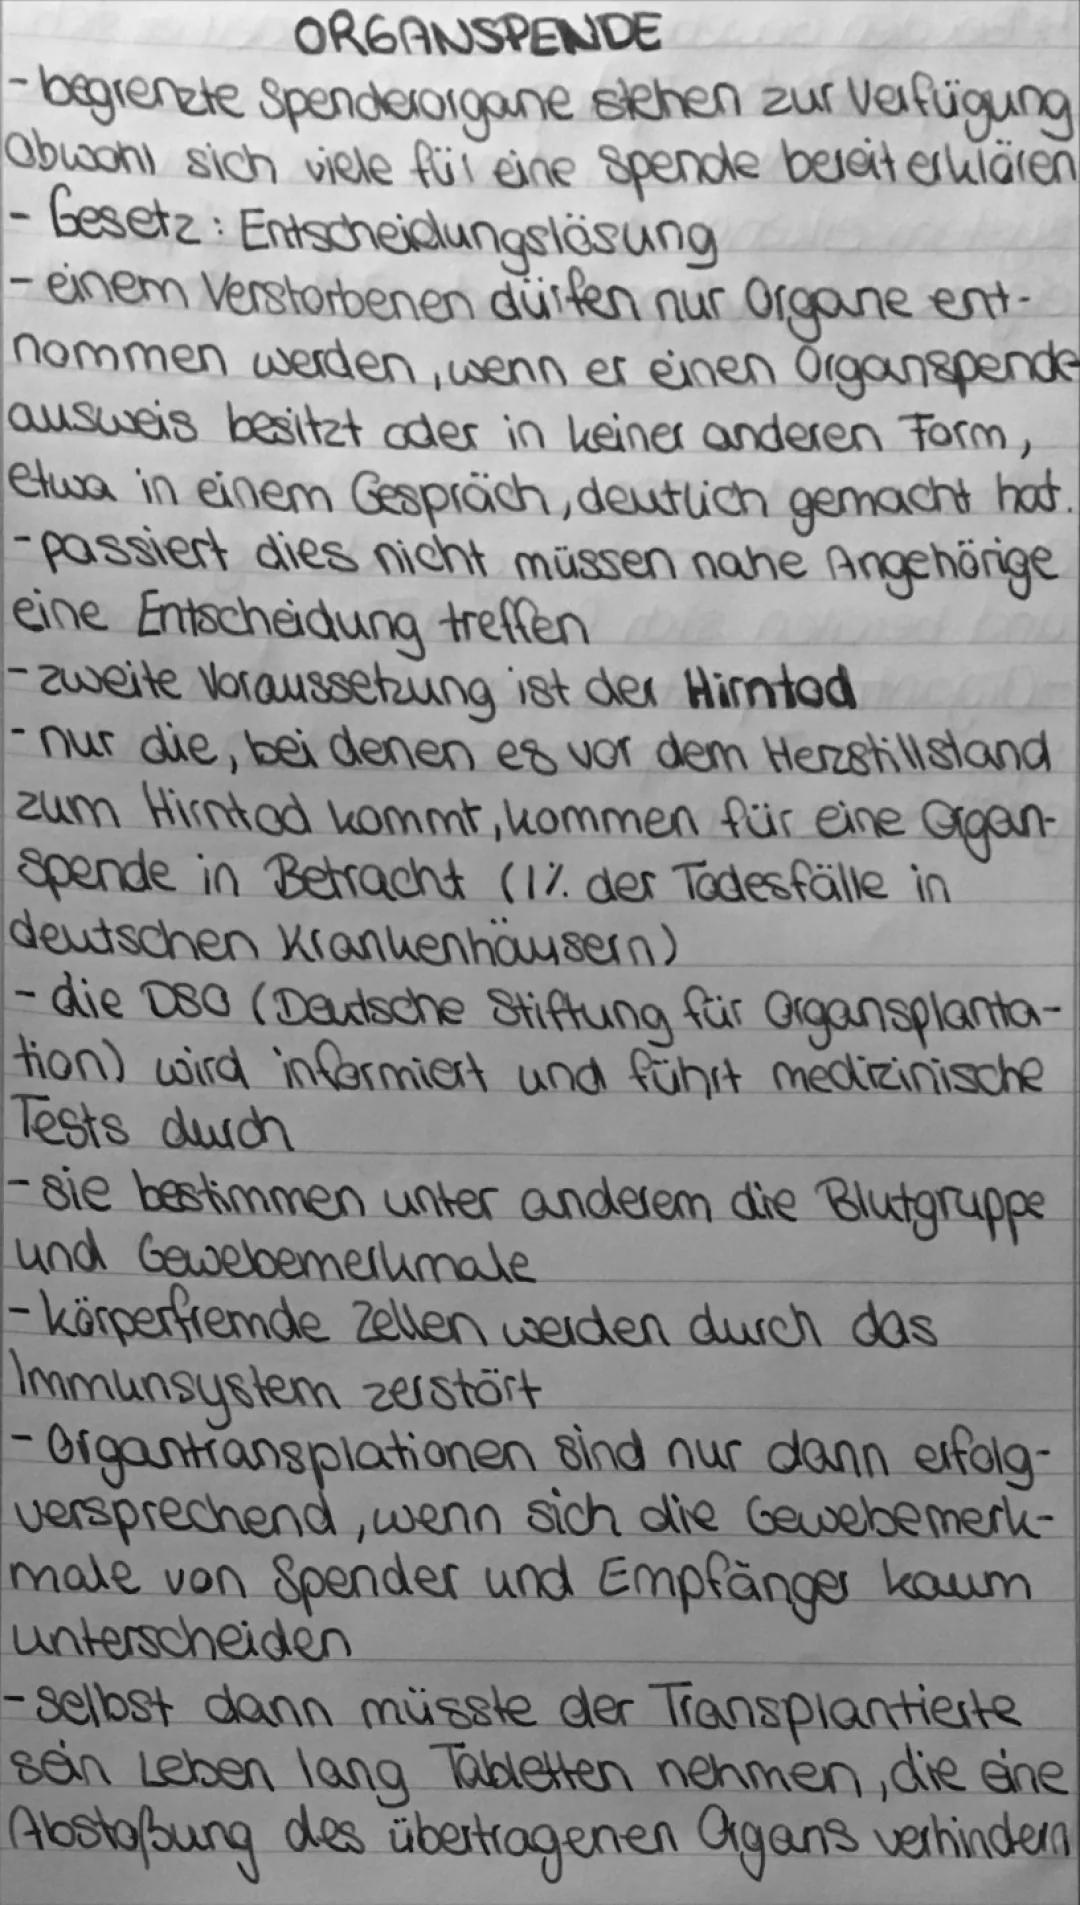 ORGANSPENDE
- begrenzte Spenderorgane stehen zur Verfügung
obwohl sich viele für eine Spende bereit erklären
- Gesetz: Entscheidungslösung
- einem Verstorbenen dürfen nur Organe ent-
nommen werden, wenn er einen Organspende-
ausweis besitzt oder in keiner anderen Form,
etwa in einem Gespräch, deutlich gemacht hat.
- passiert dies nicht müssen nahe Angehörige
eine Entscheidung treffen
- zweite Voraussetzung ist der Hirntod
- nur die, bei denen es vor dem Herzstillstand
zum Hirntod kommt, kommen für eine Organ-
spende in Betracht (1% der Todesfälle in
deutschen Krankenhäusern)
- die DSO (Deutsche Stiftung für Organsplanta-
tion) wird informiert und führt medizinische
Tests durch
- sie bestimmen unter anderem die Blutgruppe
und Gewebemerkmale
- körperfremde Zellen werden durch das
Immunsystem zerstört
- Organtransplationen sind nur dann erfolg-
versprechend, wenn sich die Gewebemerk-
male von Spender und Empfänger kaum
unterscheiden
- selbst dann müsste der Transplantierte
sein Leben lang Tabletten nehmen, die eine
Abstoßung des übertragenen Organs verhindern